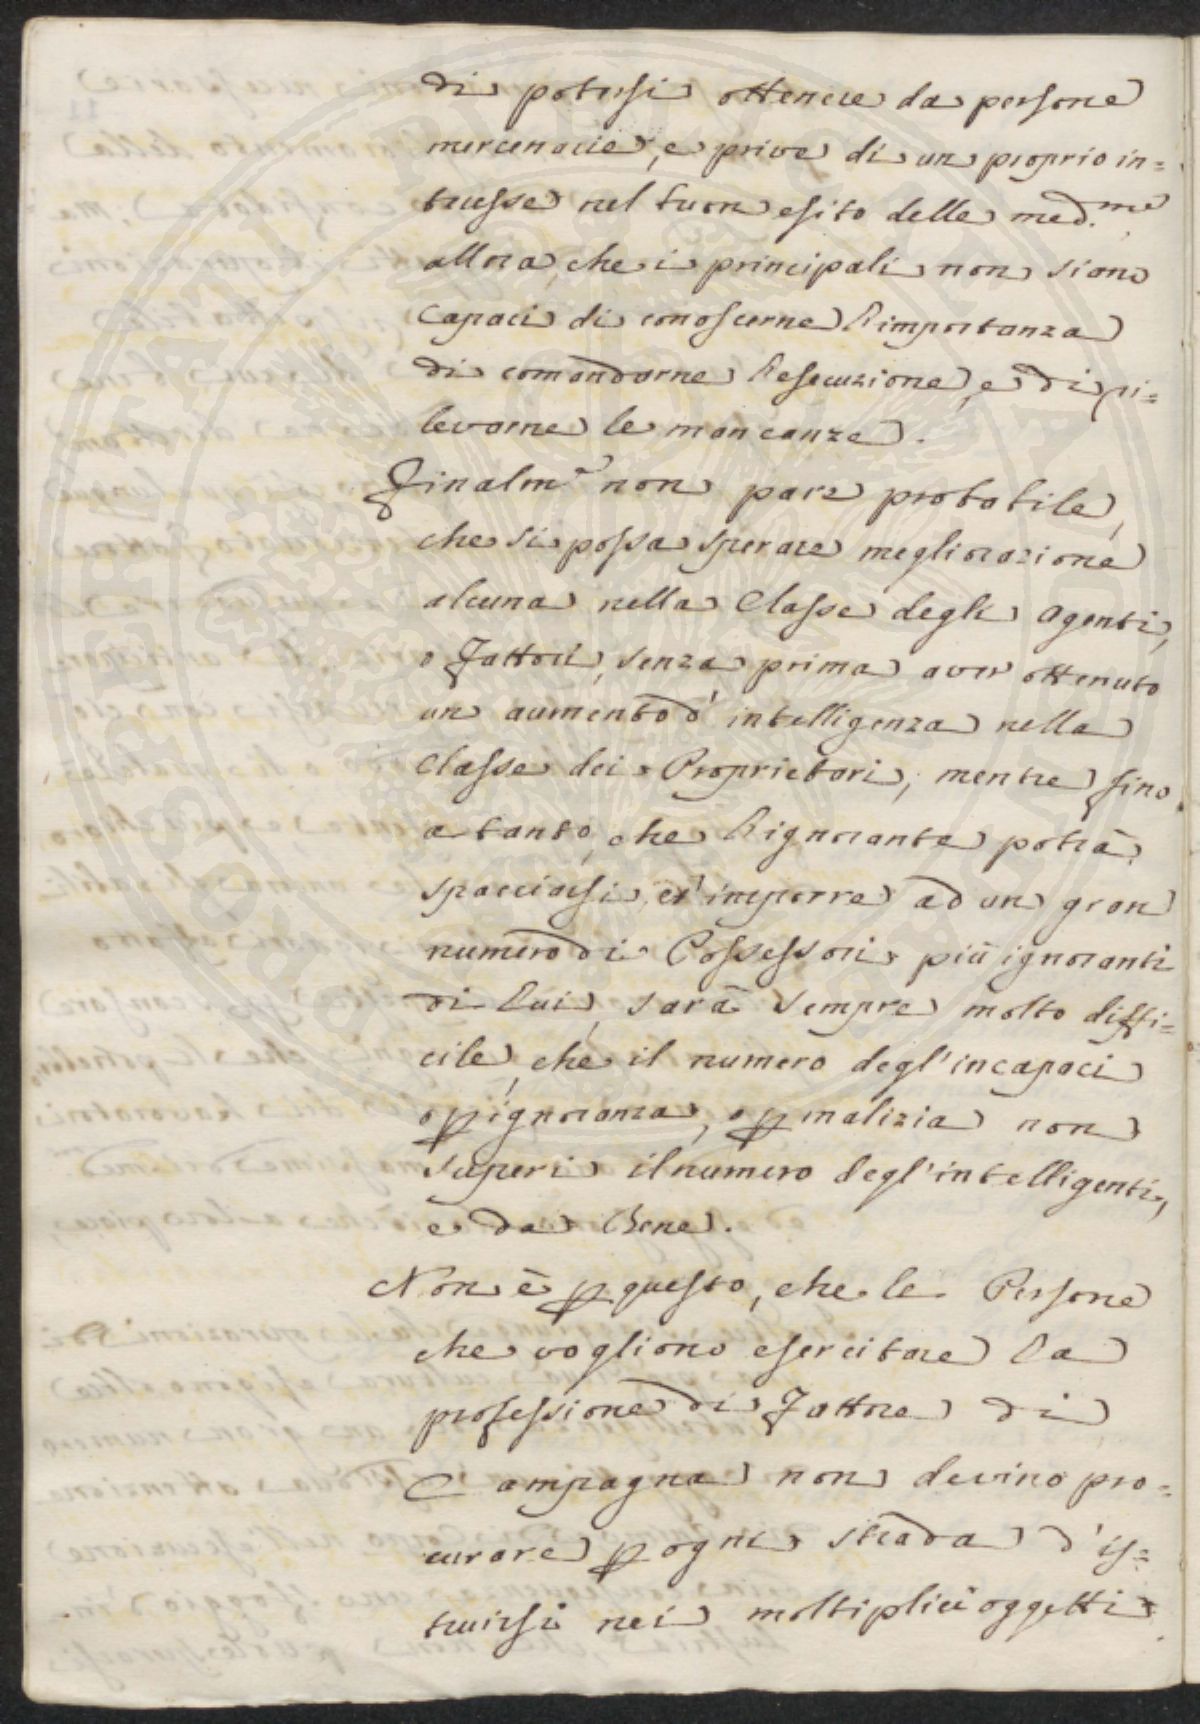 di potersi ottenere da persone
mercenarie, e prive di un proprio in=
teresse nel buon esito delle med.me
allora, che i principali non siano
capaci di conoscerne l'importanza
di comandarne l'esecuzione, e di ri=
levarne le mancanze.
Finalm.e non pare probabile,
che si possa sperare megliorazione
alcuna nella Classe degli Agenti,
o Fattori, senza prima aver ottenuto
un aumento d'intelligenza nella
Classe dei Proprietari, mentre fino
a tanto, che l'ignorante potrà
spacciarsi, ed imporre ad un gran
numero di Possessori più ignoranti
di lui, sarà sempre molto diffi=
cile, che il numero degl'incapaci
o p ignoranza, o p malizia non
superi il numero degl'intelligenti,
e da Bene.
Non è p questo, che le Persone
che vogliono esercitare la
professione di Fattore di
Campagna non devino pro=
curare p ogni strada d'is=
truirsi nei moltiplici oggetti
PRO SPERITATI PUBLICAE AUGENDAE